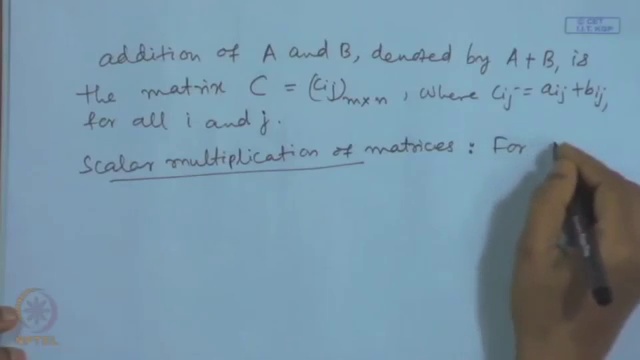 © CET
I.I.T. KGP
addition of A and B, denoted by A+B, is
the matrix C = (cij)m×n, where cij = aij + bij,
for all i and j.
Scalar multiplication of matrices : For
NPTEL